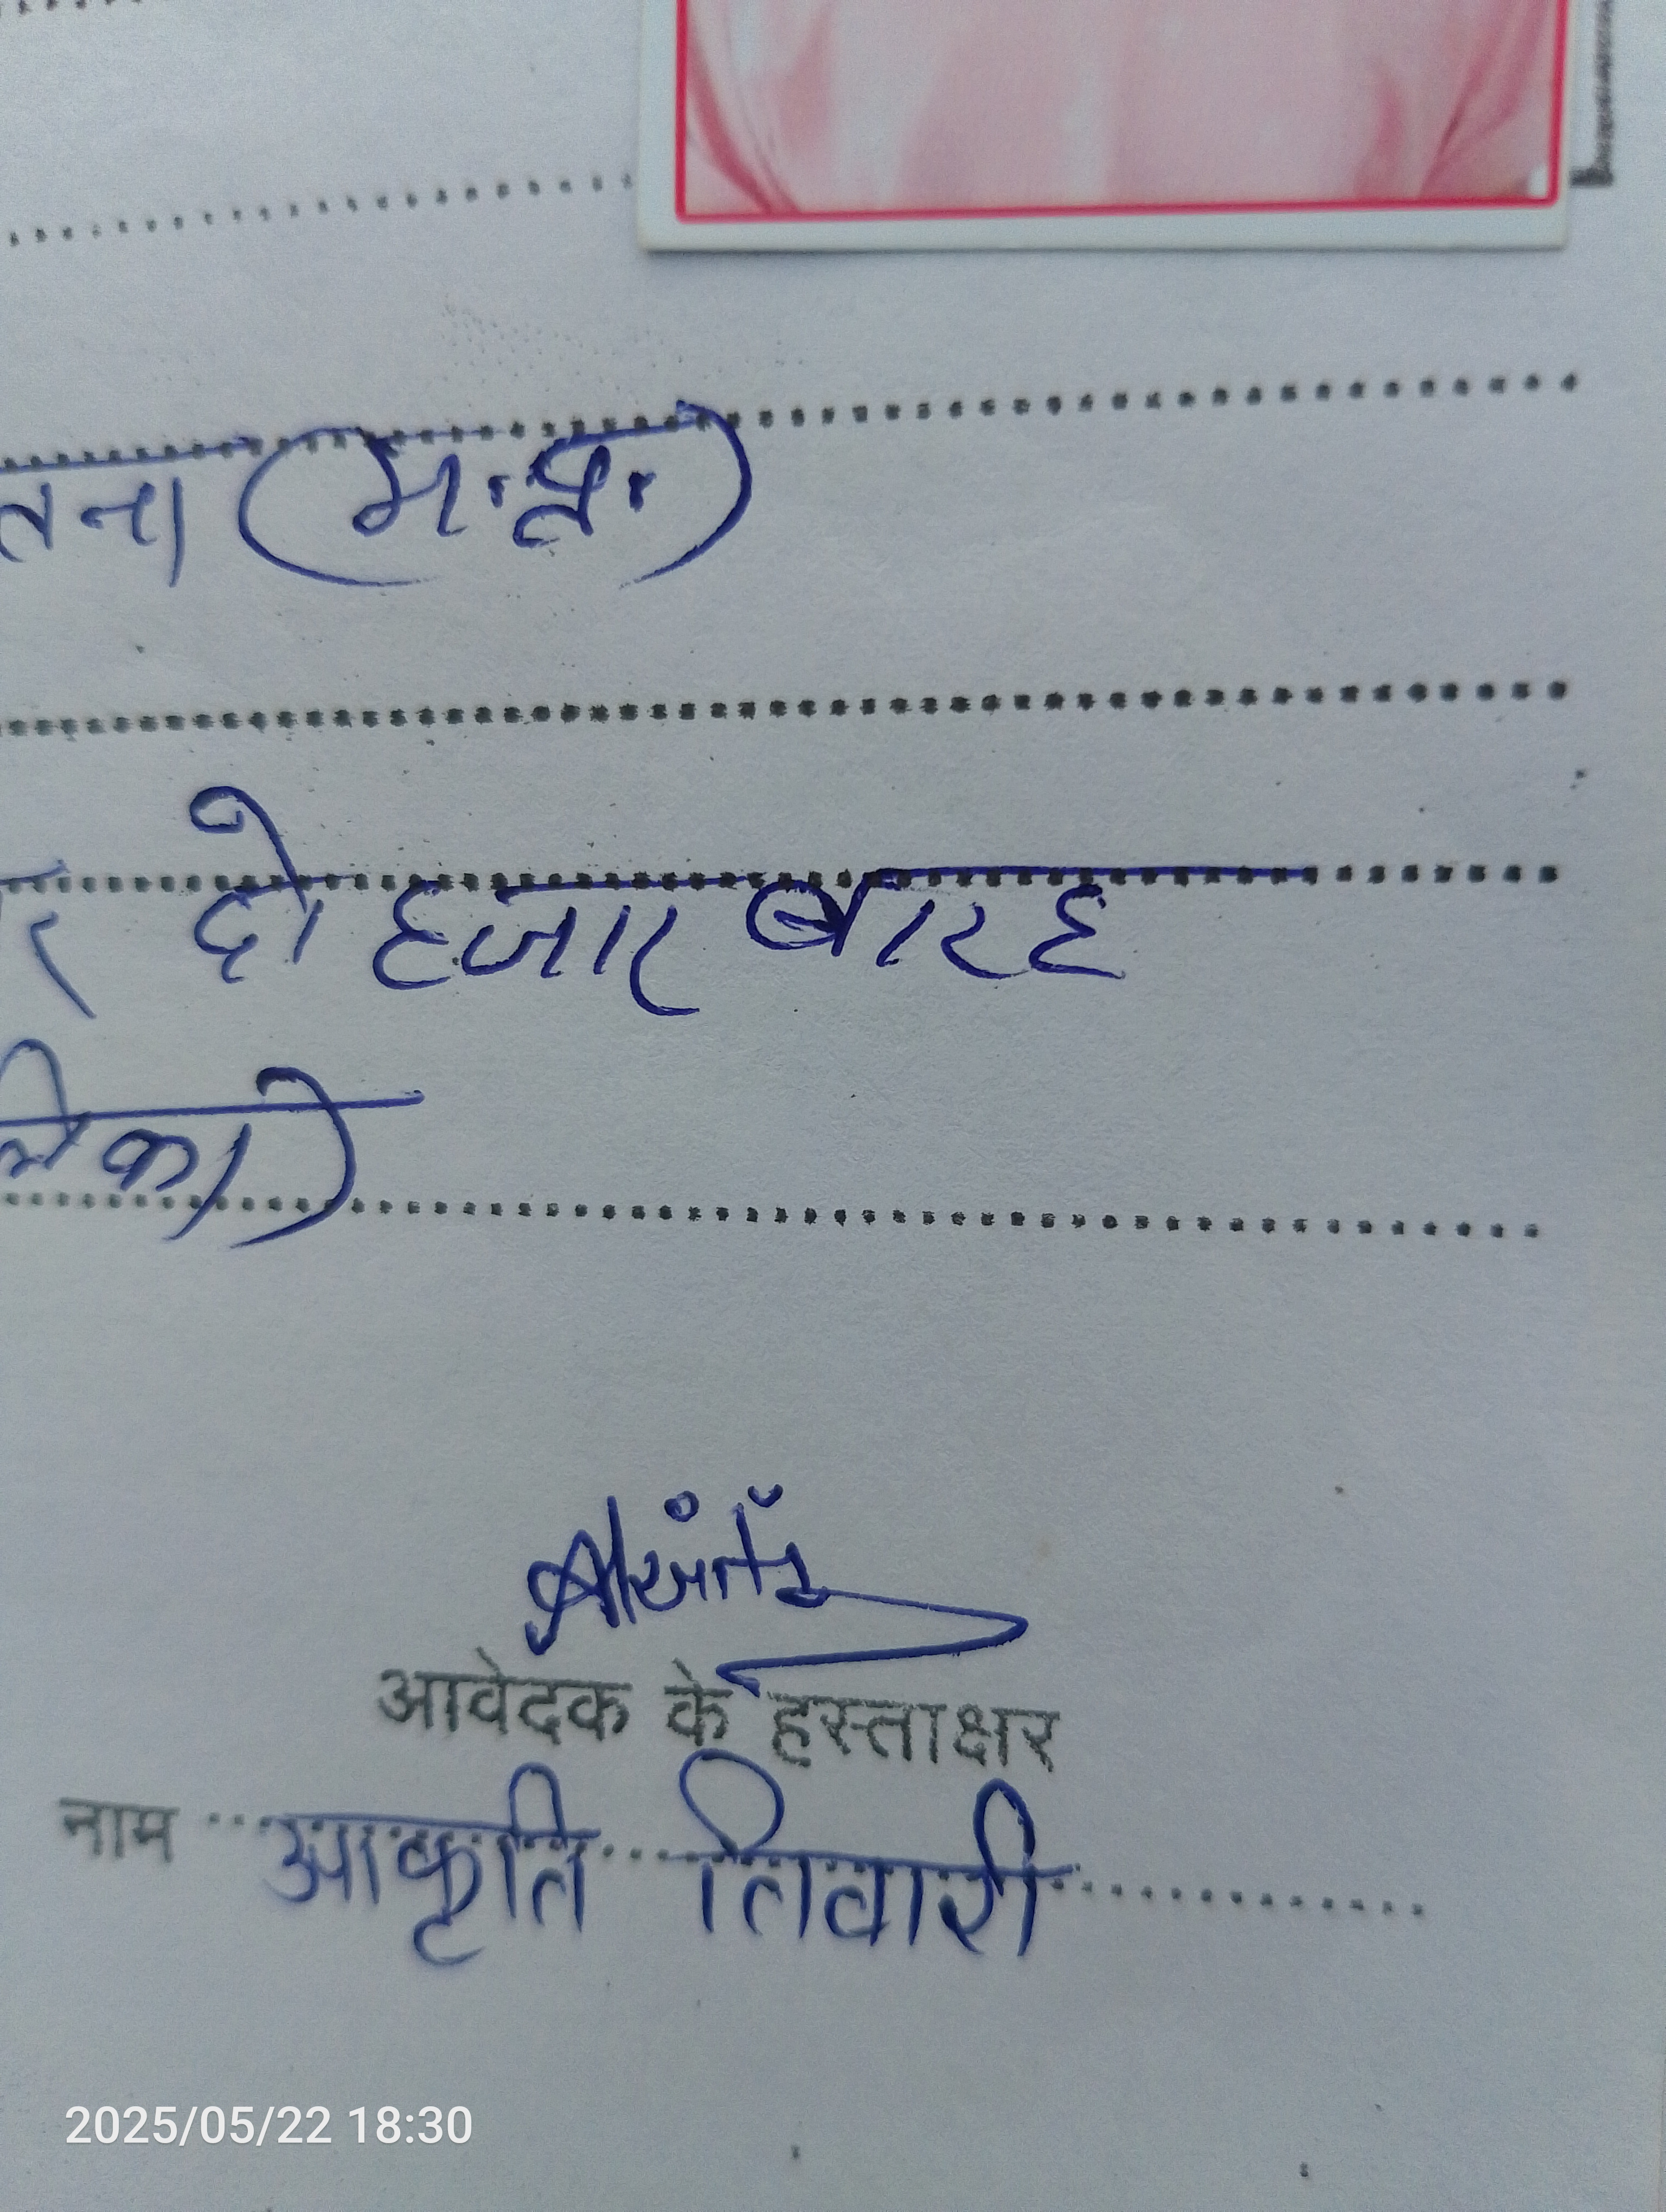 तना (म.प्र.)
दो हजार बारह
आवेदक के हस्ताक्षर
नाम आकृति तिवारी
2025/05/22 18:30